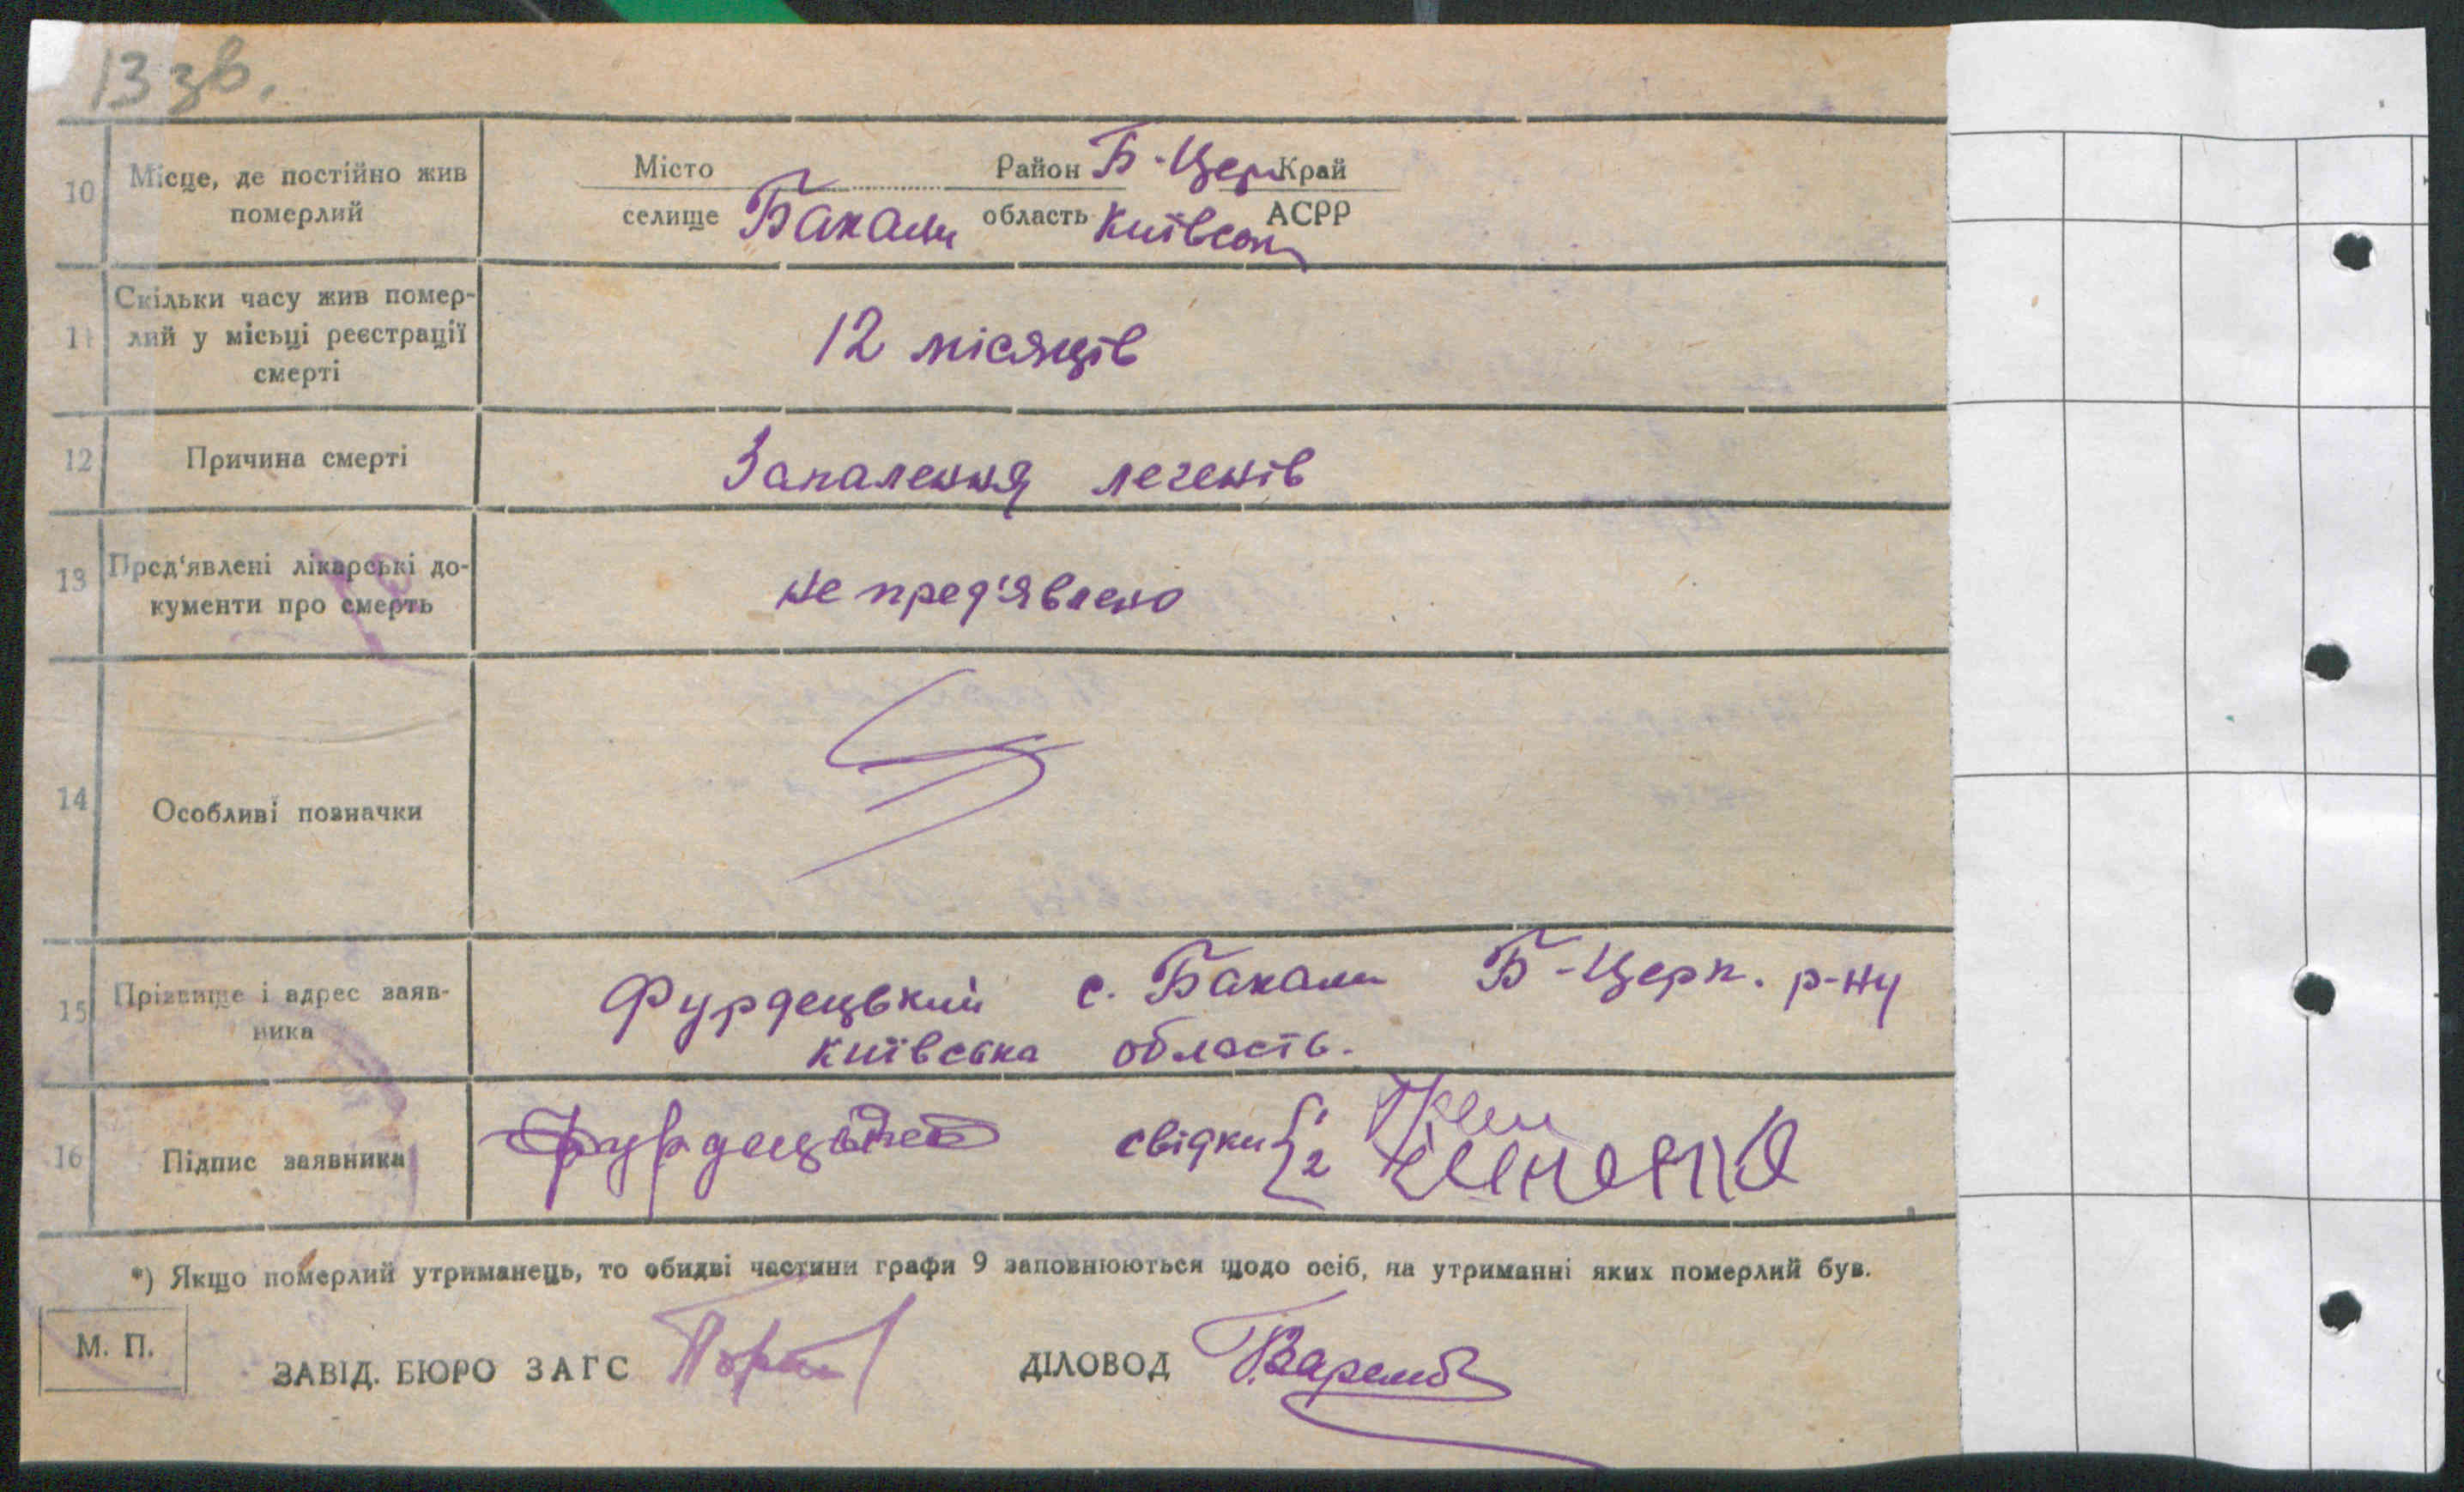 13 зв.
10 Місце, де постійно жив померлий
Місто Район Б-Церк Край
селище Бакали область Київськ АСРР
11 Скільки часу жив помер-
лий у місьці реєстрації
смерті
12 місяців
12 Причина смерті Запалення легенів
13 Пред'явлені лікарські до-
кументи про смерть
не пред'явлено
14 Особливі позначки
15 Прізвище і адрес заяв-
ника
Фурдецький с. Бакали Б-Церк. р-ну
Київська область.
16 Підпис заявника Фурдецький свідки 1
2
*) Якщо померлий утриманець, то обидві частини графи 9 заповнюються щодо осіб, на утриманні яких померлий був.
М. П.
ЗАВІД. БЮРО ЗАГС ДІЛОВОД